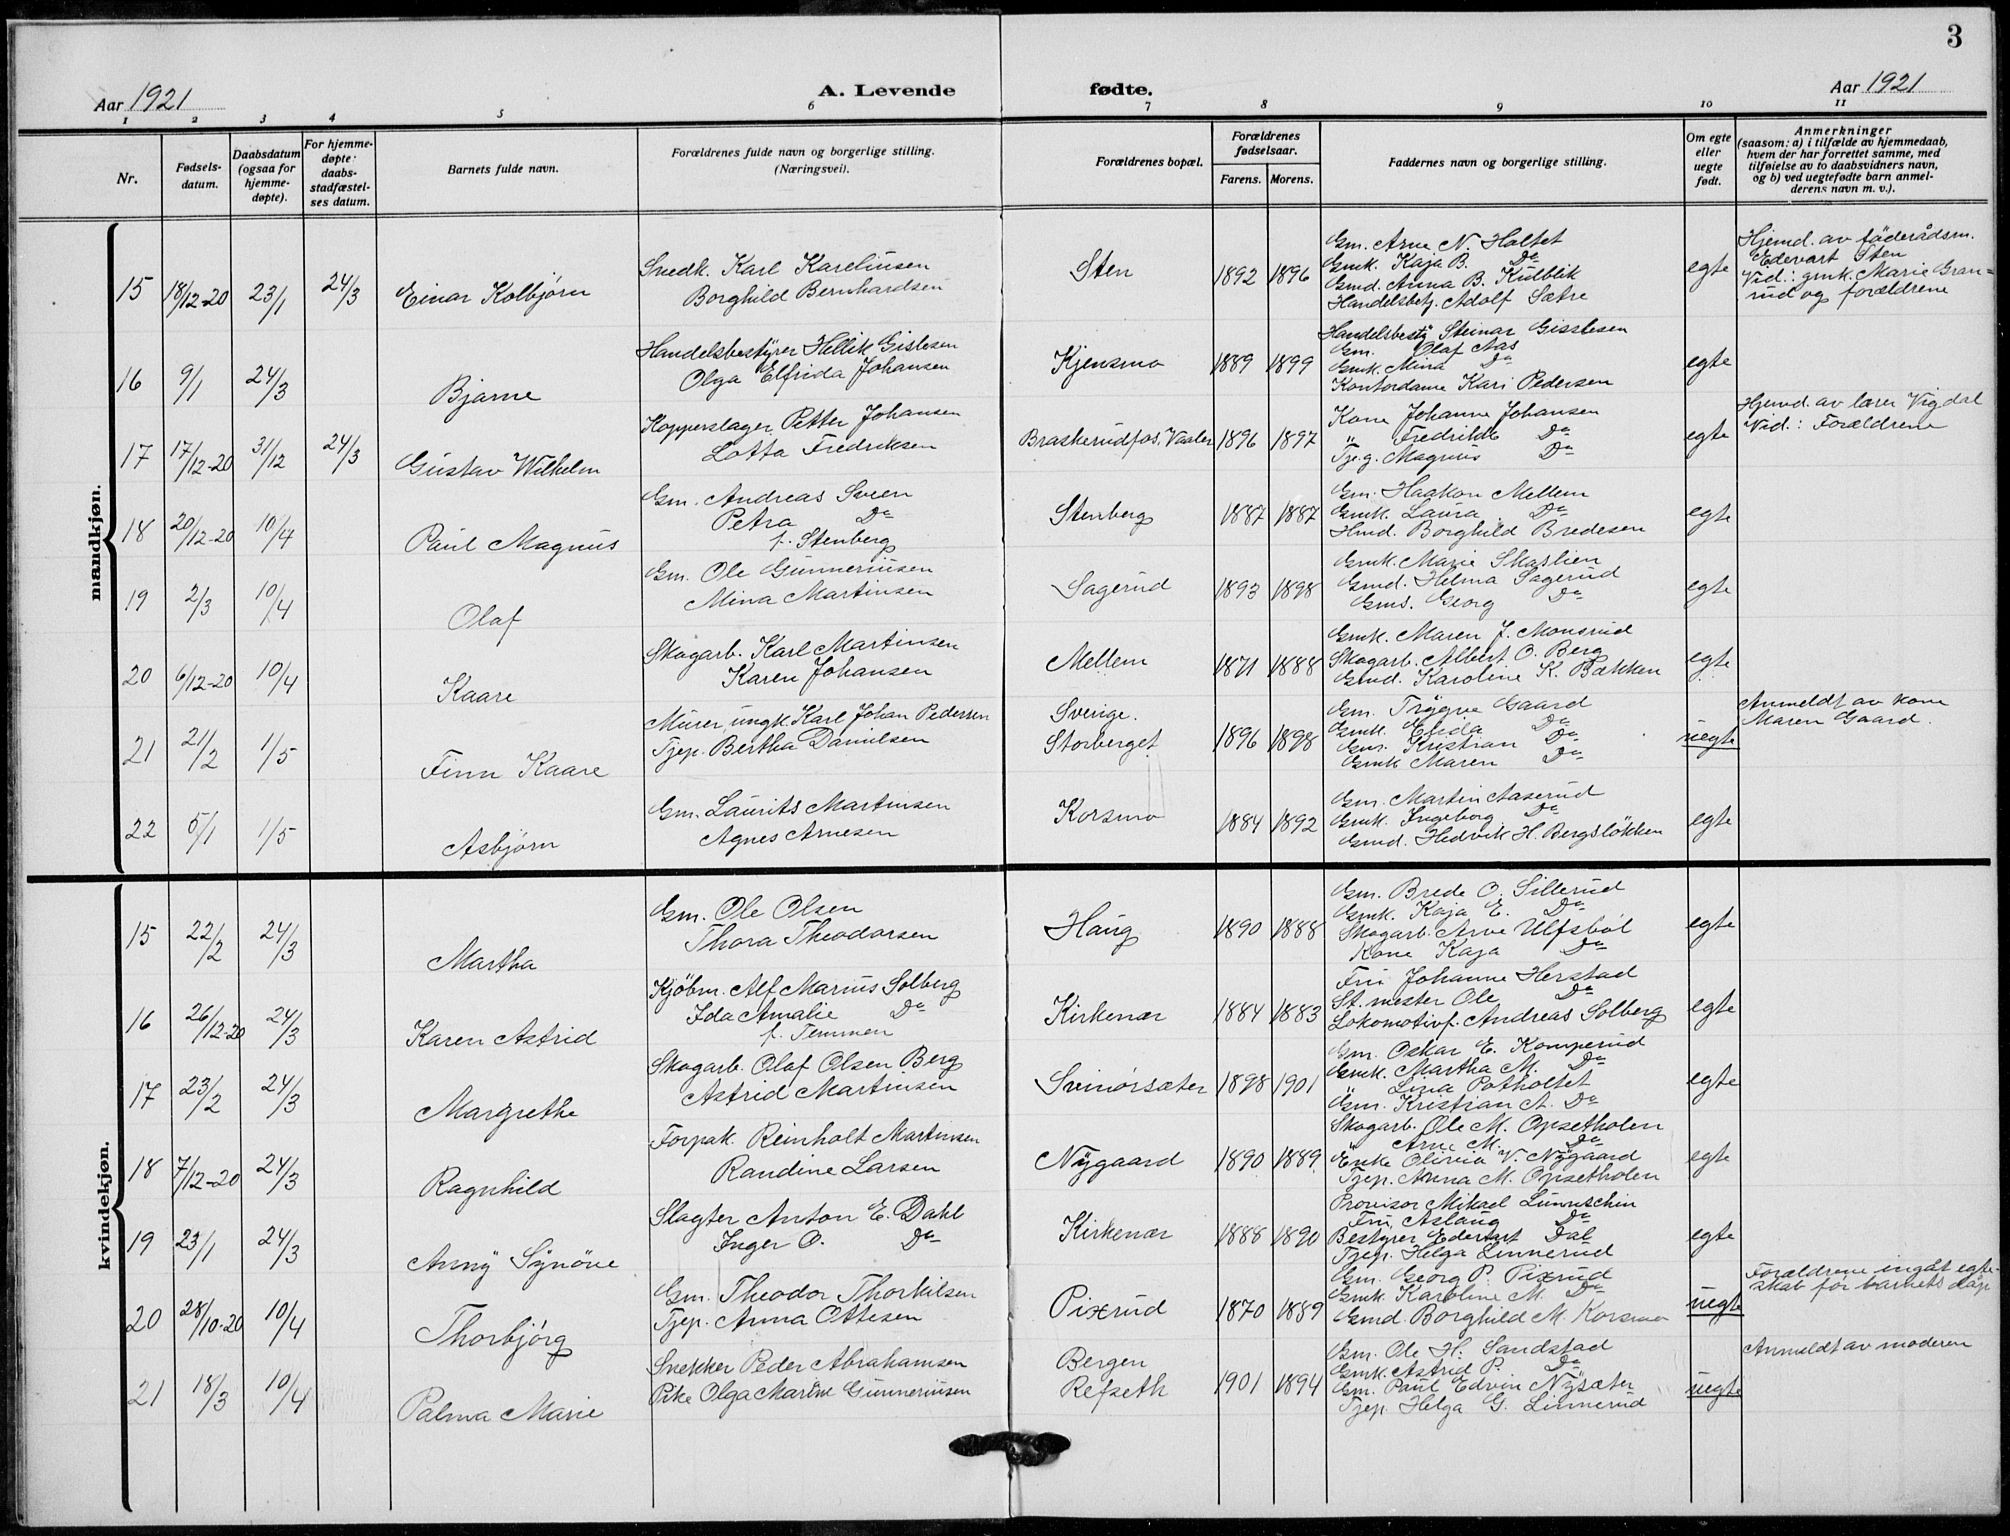 3
Aar 1921 A. Levende fødte. Aar 1921
1 2 3 4 5 6 7 8 9 10 11
Nr.
Fødsels-
datum.
Daabsdatum
(ogsaa for
hjemme-
døpte).
For hjemme-
døpte:
daabs-
stadfæstel-
ses datum.
Barnets fulde navn.
Forældrenes fulde navn og borgerlige stilling.
(Næringsvei).
Forældrenes bopæl.
Forældrenes
fødselsaar.
Farens. Morens.
Faddernes navn og borgerlige stilling.
Om egte
eller
uegte
født.
Anmerkninger
(saasom: a) i tilfælde av hjemmedaab,
hvem der har forrettet samme, med
tilføielse av to daabsvidners navn,
og b) ved uegtefødte barn anmel-
derens navn m. v.).
mandkjøn.
15 18/12-20 23/1 24/3 Einar Kolbjørn
Snedk. Karl Kareliusen
Borghild Bernhardsen
Sten 1892 1896
Gm. Arne N. Haltet
Gmk. Kaja B. Do
Gmd. Anna B. Kulblik
Handelsbetj. Adolf Sætre
egte
Hjemd. av föderådsm.
Edevart Sten
Vid.: gmk. Marie Gran-
rud og forældrene
16 9/1 24/3 Bjarne
Handelsbestyrer Hellik Gislesen
Olga Elfrida Johansen
Kjensmo 1889 1899
Handelsbesty Steinar Gisslesen
Gm. Olaf Aas
Gmk. Mina Do
Kontordame Kari Pedersen
egte
17 17/12-20 31/12 24/3 Gustav Wilhelm
Kopperslager Petter Johansen
Lotta Fredriksen
Braskerudfos, Vaaler 1896 1897
Kone Johanne Johansen
" Fredrikke Do
Tje.g. Magnus Do
egte
Hjemd. av lærer Vigdal
Vid.: Forældrene
18 20/12-20 10/4 Paul Magnus
Gm. Andreas Sveen
Petra Do
f. Stenberg
Stenberg 1887 1887
Gm. Haakon Mellem
Gmk. Laura Do
Hmd. Borghild Bredesen
egte
19 2/3 10/4 Olaf
Gm. Ole Gunneriusen
Mina Martinsen
Sagerud 1893 1898
Gmk. Marie Skaslien
Gmd. Helma Sagerud
Gms. Georg Do
egte
20 6/12-20 10/4 Kaare
Skogarb. Karl Martinsen
Karen Johansen
Mellem 1871 1888
Gmk. Maren J. Monsrud
Skogarb. Albert O. Berg
Gmd. Karoline K. Bækken
egte
21 21/2 1/5 Finn Kaare
Murer, ungk. Karl Johan Pedersen
Tjep. Bertha Danielsen
Sverige.
Storberget
1896 1898
Gm. Trygve Gaard
Gmk. Elida Do
Gm. Kristian Do
Gmk Maren Do
uegte
Anmeldt av kone
Maren Gaard.
22 5/1 1/5 Asbjørn
Gm. Laurits Martinsen
Agnes Arnesen
Korsmo 1884 1892
Gm. Martin Aaserud
Gmk. Ingeborg Do
Gmd. Hedvik H. Bergsløkken
egte
kvindekjøn.
15 22/2 24/3 Martha
Gm. Ole Olsen
Thora Theodorsen
Haug 1890 1888
Gm. Brede O. Sillerud
Gmk. Kaja E. Do
Skogarb. Arve Ulfsböl
Kone Kaja Do
egte
16 26/12-20 24/3 Karen Astrid
Kjöbm. Alf Marius Solberg
Ida Amalie Do
f. Temmen
Kirkenær 1884 1883
Fru Johanne Herstad
St. mester Ole Do
Lokomotivf. Andreas Solberg
egte
17 23/2 24/3 Margrethe
Skogarb. Olaf Olsen Berg
Astrid Martinsen
Svinörsæter 1898 1901
Gm. Oskar E. Komperud
Gmk. Martha M. Do
" Lina Potholtet
Gm. Kristian A. Do
egte
18 7/12-20 24/3 Ragnhild
Forpak. Reinholt Martinsen
Randine Larsen
Nygaard 1890 1889
Skogarb. Ole M. Opsetholen
" Arne M. Do
Enke Olivia V. Nygaard
Tjep. Anna M. Opsetholen
egte
19 23/1 24/3 Anny Synöve
Slagter Anton E. Dahl
Inger O. Do
Kirkenær 1888 1890
Provisor Mikael Linneschin
Fru Aslaug Do
Bestyrer Edevart Dal
Tjep. Helga Linnerud
egte
20 28/10-20 10/4 Thorbjörg
Gm. Theodor Thorkilsen
Tjep. Anna Ottesen
Pixrud 1870 1889
Gm. Georg P. Pixrud
Gmk. Karoline M. Do
Gmd. Borghild M. Korsmo
uegte
Forældrene ingåt egte-
skab för barnets dåp
21 18/3 10/4 Palma Marie
Snekker Peder Abrahamsen
Pike Olga Marine Gunneriusen
Bergen
Refseth
1901 1894
Gm. Ole H. Sandstad
Gmk. Astrid P. Do
Gm. Paul Edvin Nysæter
Tjep. Helga G. Linnerud
uegte
Anmeldt av moderen